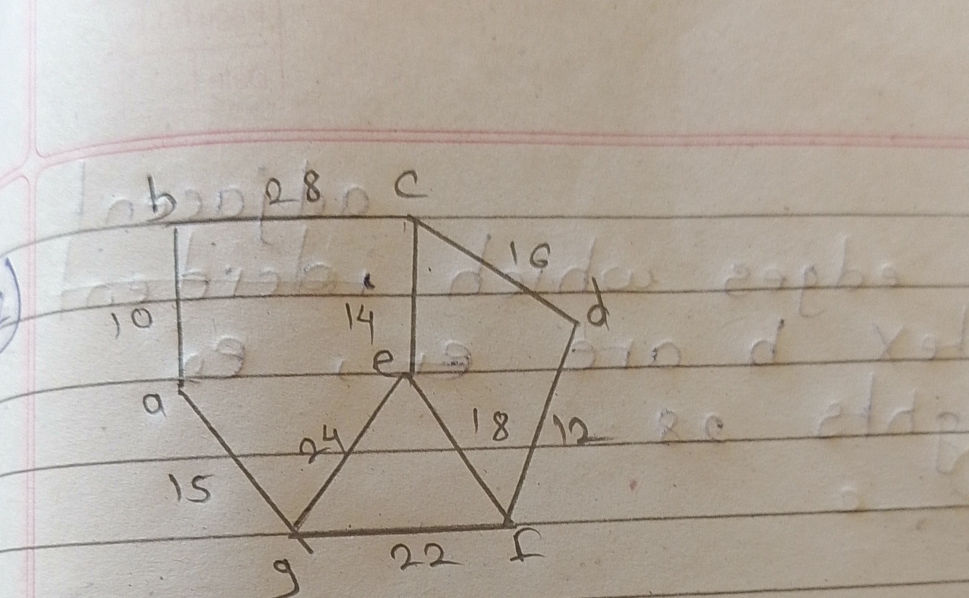 b 28 c
16
10 14 d
e
a
24 18 12
15
22 f
g